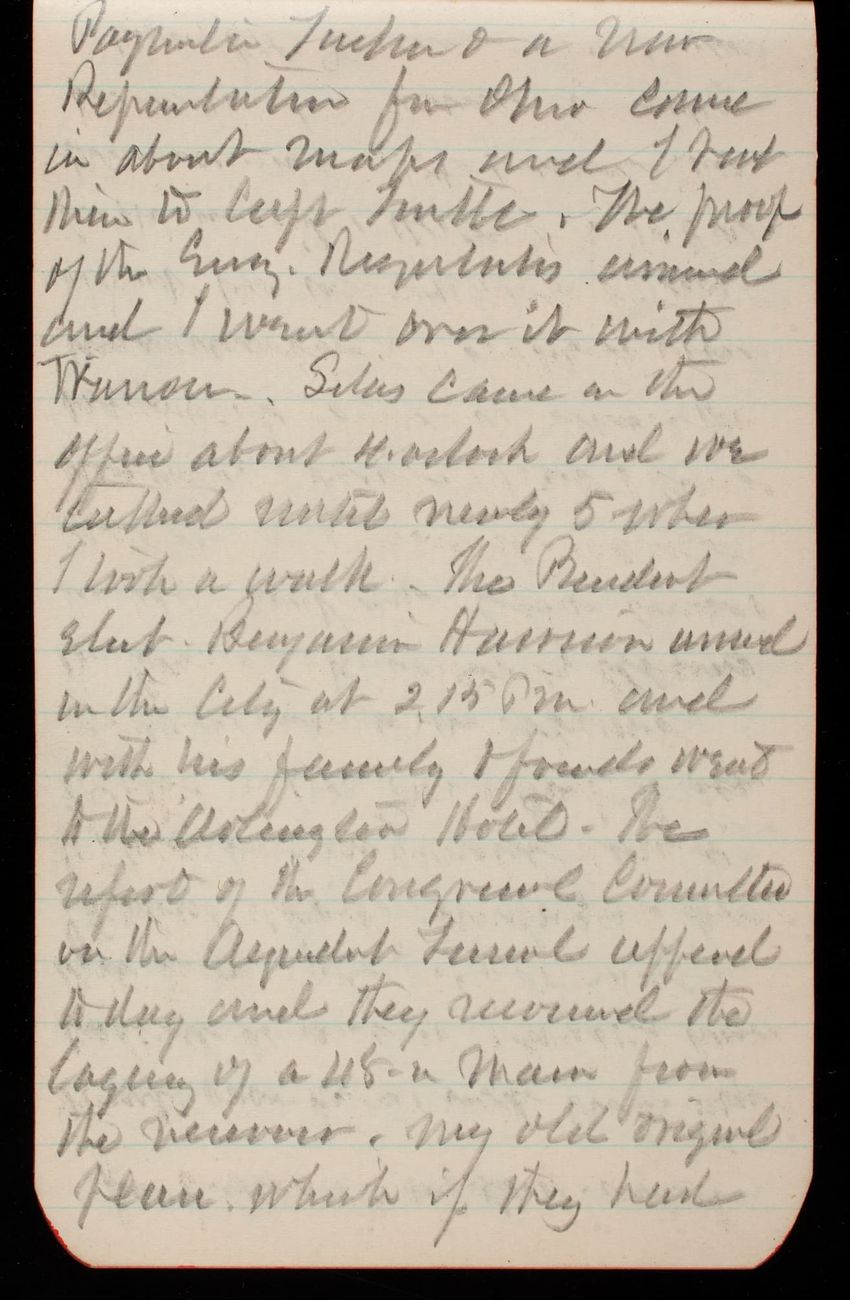 Tucker & a new
Representative from Ohio came
in about maps and I sent
them to Capt Tuttle. The proof
of the Eng. Regulations arrived
and I went over it with
Silas came in the
office about 4. oclock and we
talked until nearly 5 when
I took a walk. The President
Elect Benjamin Harrison arrived
in the City at 2.15 Pm and
with his family & friends went
to the Arlington Hotel. The
report of the Congressional Committee
on the Aqueduct Tunnel appeared
to day and they recommend the
laying of a 48-in Main from
the reservoir. my old original
plan. which if they had